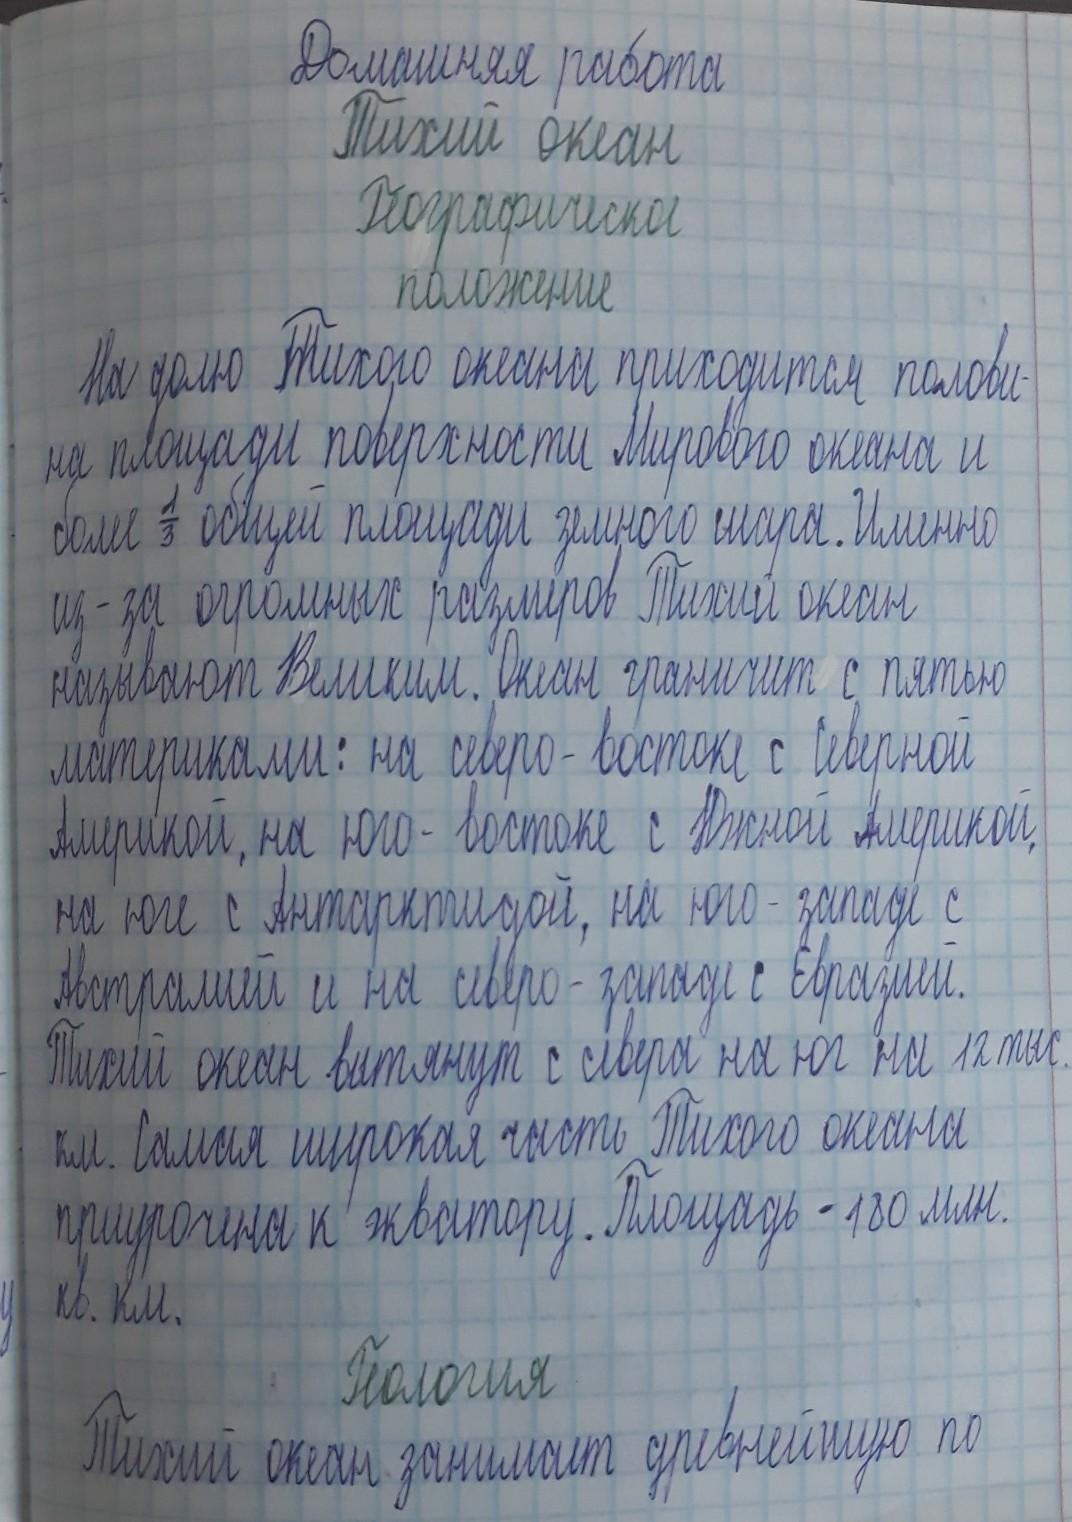 Домашняя работа
Тихий океан
Географическое
положение
На долю Тихого океана приходится полови-
на площади поверхности Мирового океана и
более 1/3 общей площади земного шара. Именно
из-за огромных размеров Тихий океан
называют Великим. Океан граничит с пятью
материками: на северо-востоке с Северной
Америкой, на юго-востоке с Южной Америкой,
на юге с Антарктидой, на юго-западе с
Австралией и на северо-западе с Евразией.
Тихий океан вытянут с севера на юг на 12 тыс.
км. Самая широкая часть Тихого океана
приурочена к экватору. Площадь - 180 млн.
кв. км.
Геология
Тихий океан занимает древнейшую по